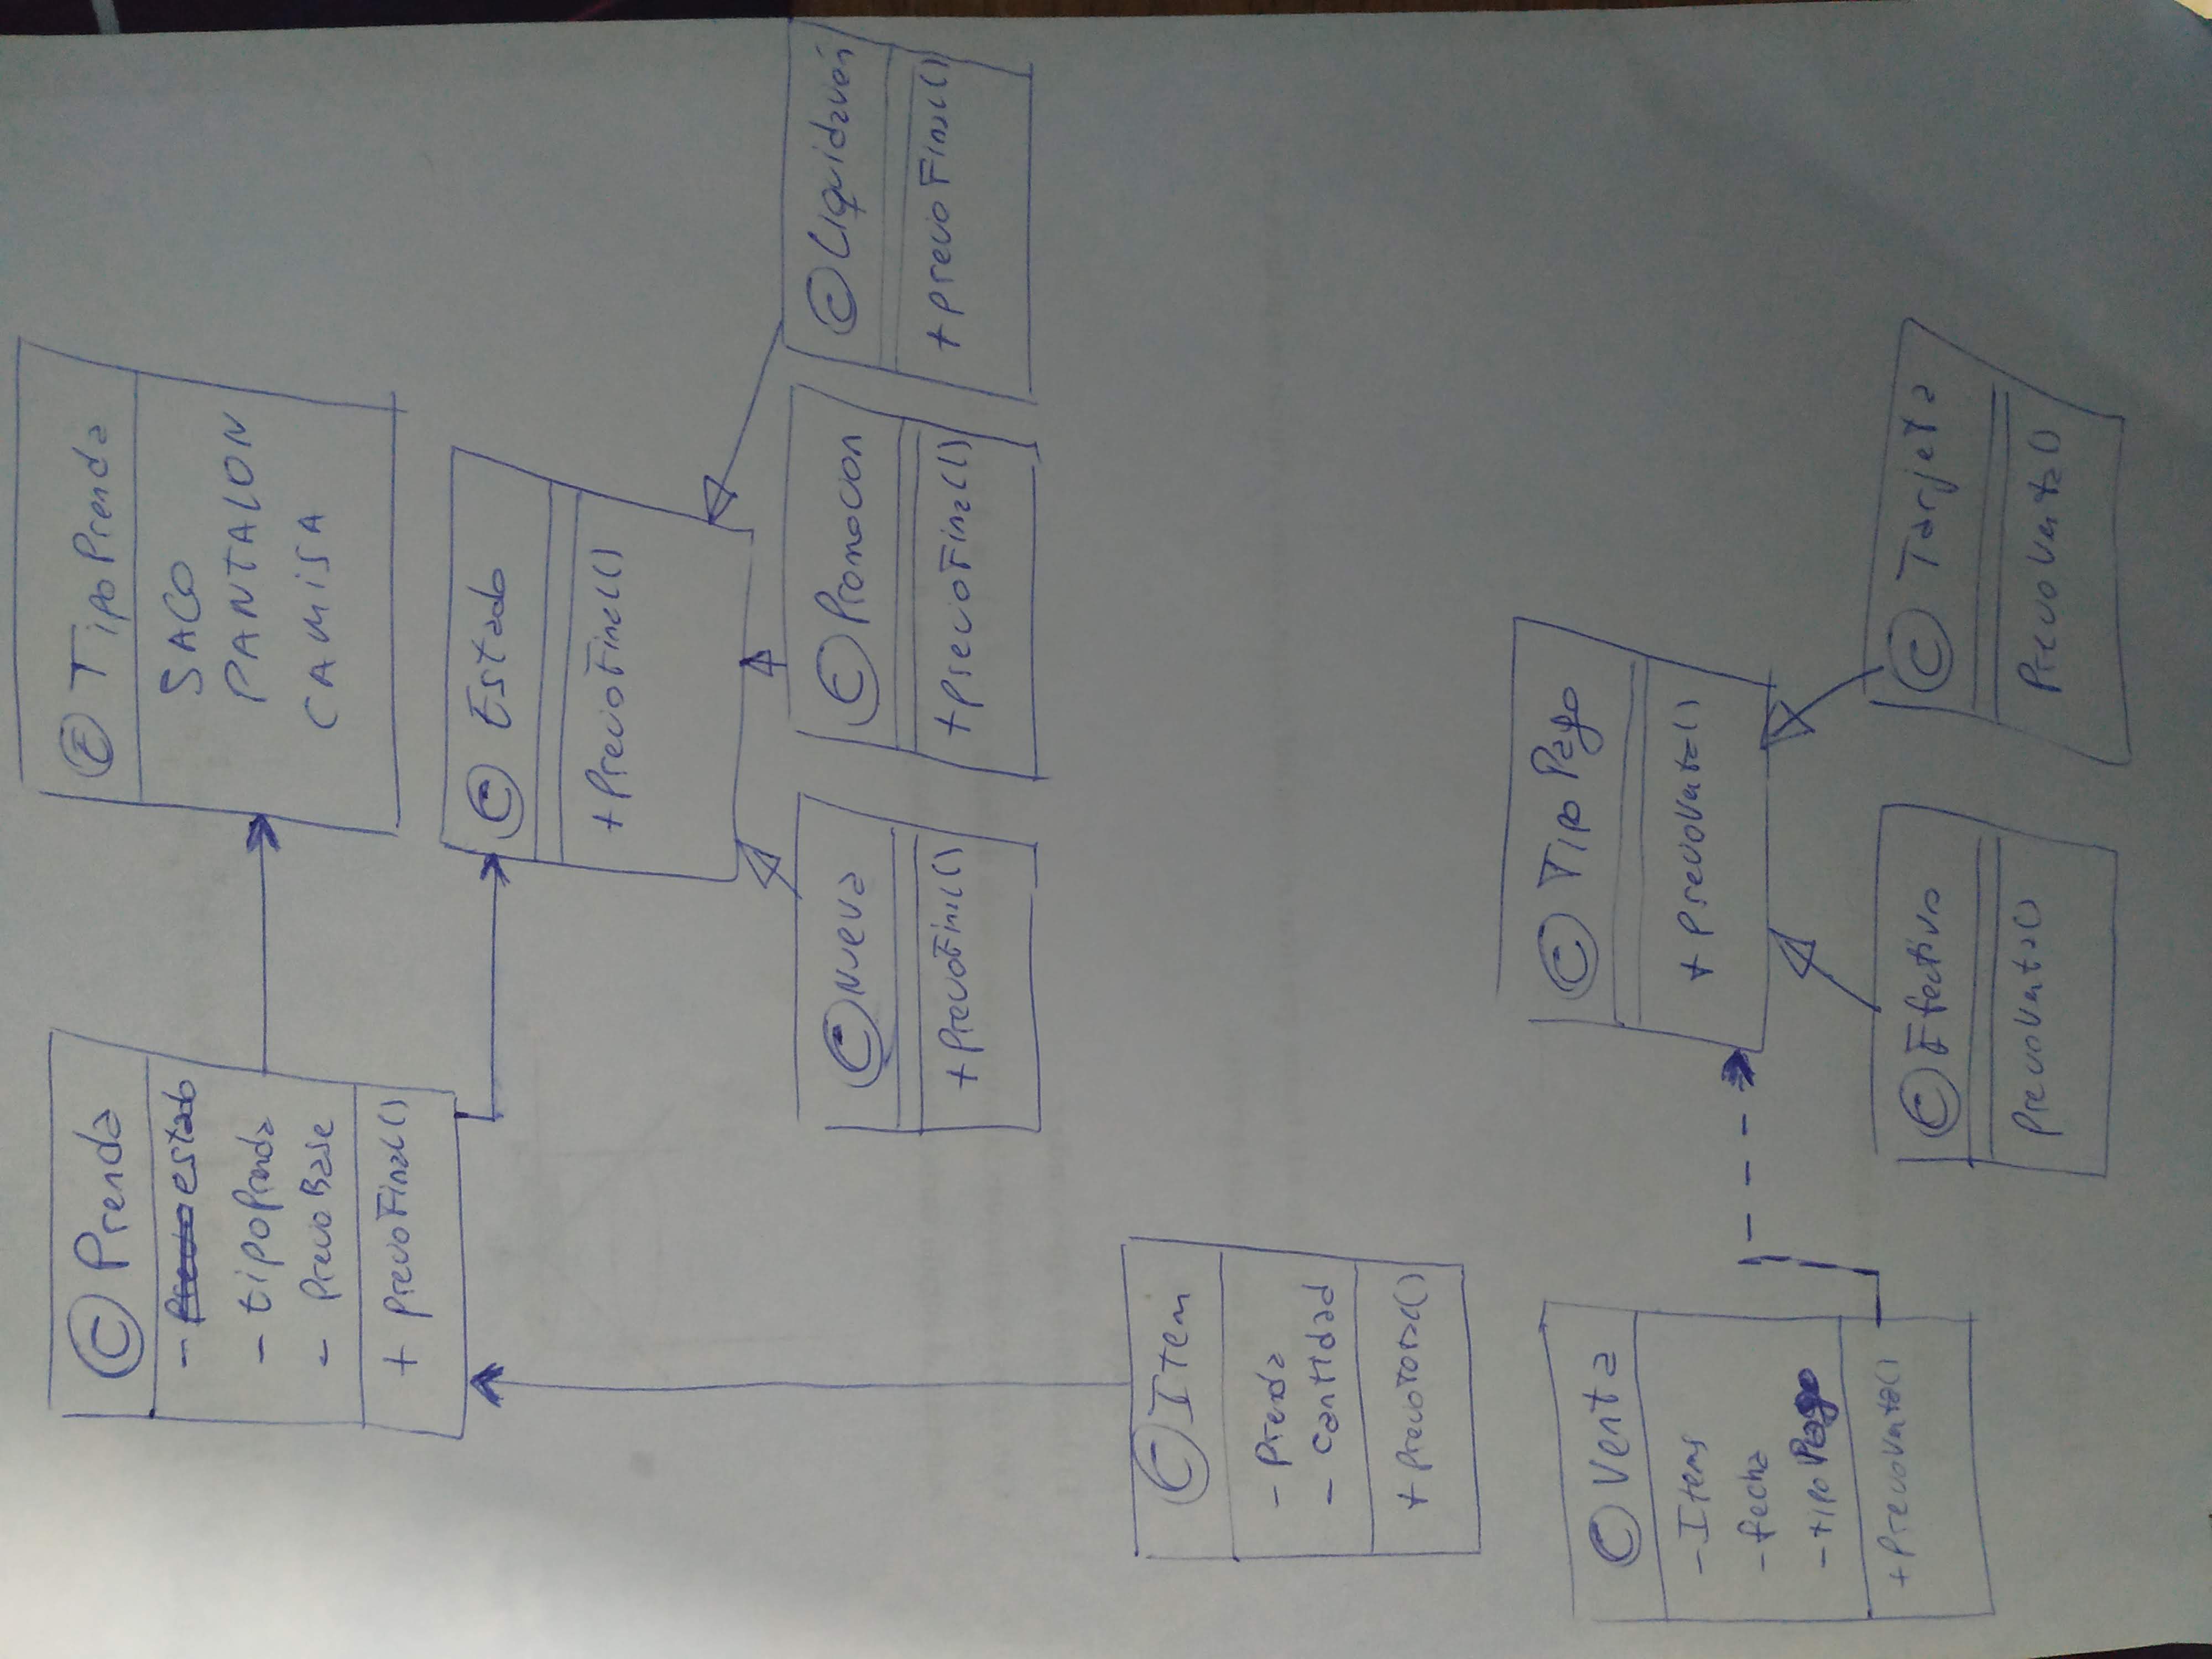 C Prenda
- estado
- tipoPrenda
- precioBase
+ precioFinal()
E TipoPrenda
SACO
PANTALON
CAMISA
C Estado
+ precioFinal()
C Nueva
+ precioFinal()
C Promocion
+ precioFinal()
C Liquidación
+ precioFinal()
C Item
- Prenda
- cantidad
+ precioTotal()
C Venta
- Items
- fecha
- tipoPago
+ precioVenta()
C TipoPago
+ precioVenta()
C Efectivo
precioVenta()
C Tarjeta
PrecioVenta()